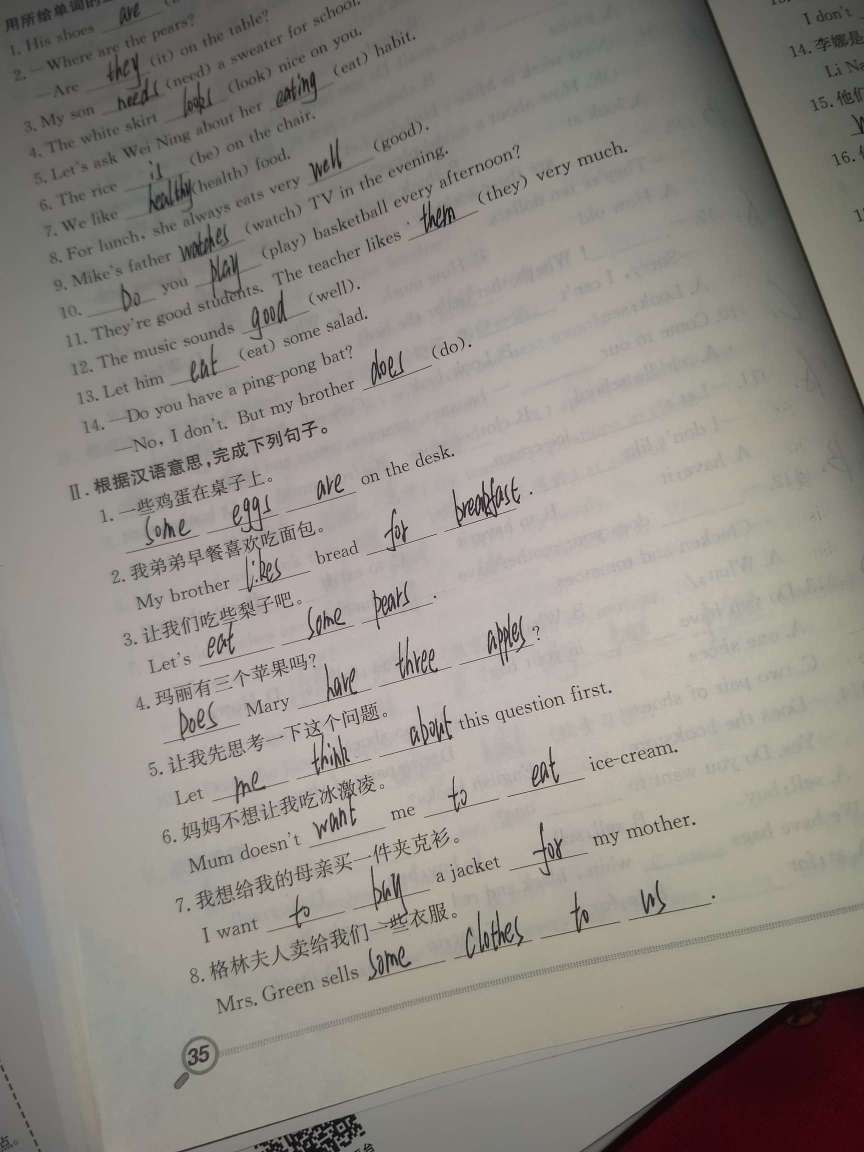 用所给单词的
1. His shoes are
2. —Where are the pears?
—Are they (it) on the table?
3. My son needs (need) a sweater for school.
4. The white skirt looks (look) nice on you.
5. Let's ask Wei Ning about her eating (eat) habit.
6. The rice is (be) on the chair.
7. We like healthy (health) food.
8. For lunch, she always eats very well (good).
9. Mike's father watches (watch) TV in the evening.
10. Do you play (play) basketball every afternoon?
11. They're good students. The teacher likes them (they) very much.
12. The music sounds good (well).
13. Let him eat (eat) some salad.
14. —Do you have a ping-pong bat?
—No, I don't. But my brother does (do).
Ⅱ. 根据汉语意思,完成下列句子。
1. 一些鸡蛋在桌子上。
some eggs are on the desk.
2. 我弟弟早餐喜欢吃面包。
My brother likes bread for breakfast.
3. 让我们吃些梨子吧。
Let's eat some pears.
4. 玛丽有三个苹果吗?
Does Mary have three apples?
5. 让我先思考一下这个问题。
Let me think about this question first.
6. 妈妈不想让我吃冰激凌。
Mum doesn't want me to eat ice-cream.
7. 我想给我的母亲买一件夹克衫。
I want to buy a jacket for my mother.
8. 格林夫人卖给我们一些衣服。
Mrs. Green sells some clothes to us.
35
I don't
14. 李娜是
Li Na
15. 他们
16.
点。